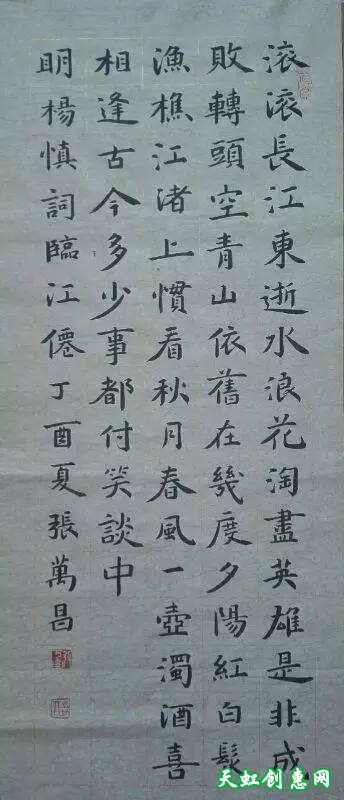 滚滚長江東逝水浪花淘盡英雄是非成
敗轉頭空青山依舊在幾度夕陽紅白髮
漁樵江渚上慣看秋月春風一壺濁酒喜
相逢古今多少事都付笑談中
明楊慎詞臨江僊丁酉夏張萬昌
天虹创惠网